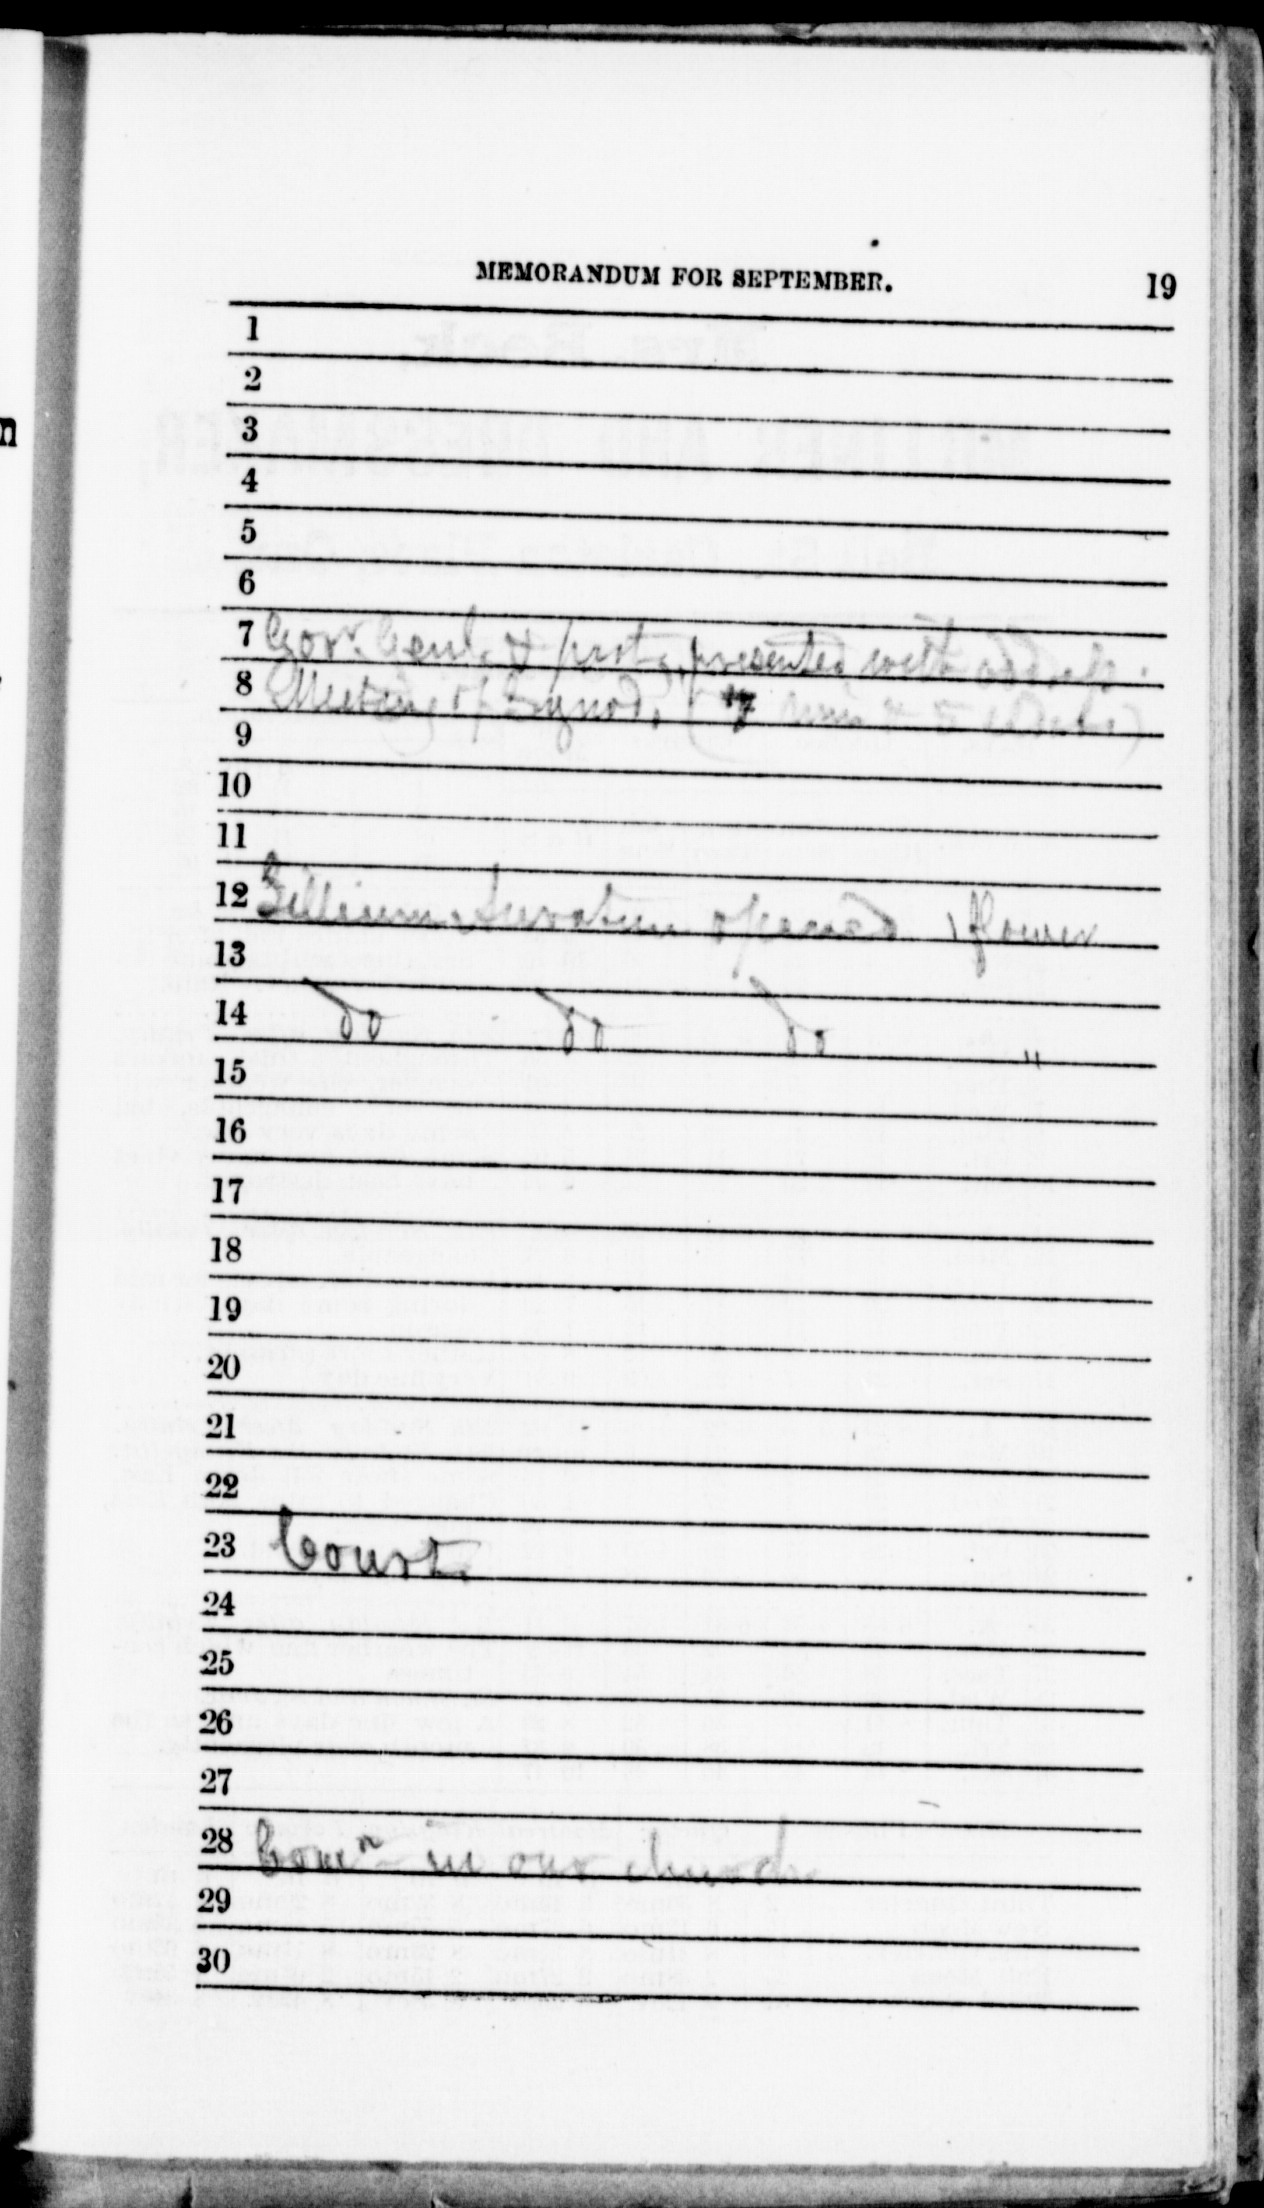 MEMORANDUM FOR SEPTEMBER. 19
1
2
3
4
5
6
7 Govr. Genl. & presented with address.
8 Meeting of Synod. (7 min & 5 elders.)
9
10
11
12 Lillium Auratum opened 1 flower
13
14 do do do "
15
16
17
18
19
20
21
22
23 Court.
24
25
26
27
28 Comn in our church.
29
30